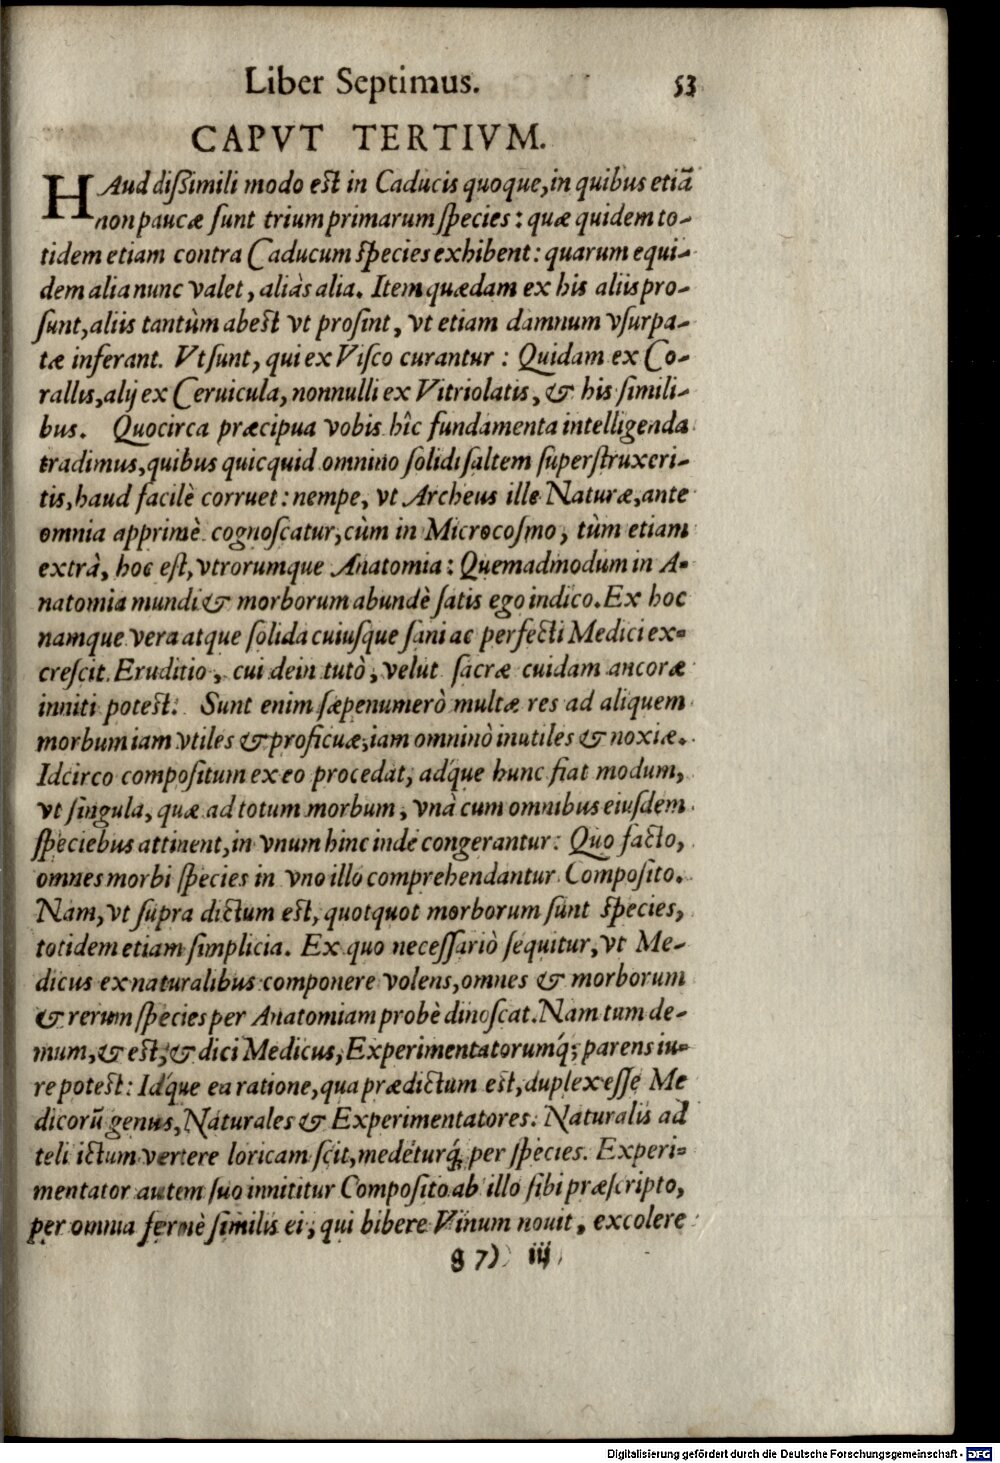 Liber Septimus. 53
CAPVT TERTIVM.
HAud dißimili modo est in Caducis quoque, in quibus etiã
non paucæ ſunt trium primarum ſpecies: quæ quidem to-
tidem etiam contra Caducum ſpecies exhibent: quarum equi-
dem alia nunc valet, aliàs alia. Item quædam ex his aliis pro-
ſunt, aliis tantùm abest vt proſint, vt etiam damnum vſurpa-
tæ inferant. Vt ſunt, qui ex Viſco curantur: Quidam ex Co-
rallis, alij ex Ceruicula, nonnulli ex Vitriolatis, & his ſimili-
bus. Quocirca præcipua vobis hîc fundamenta intelligenda
tradimus, quibus quicquid omnino ſolidi ſaltem ſuperſtruxeri-
tis, haud facilè corruet: nempe, vt Archeus ille Naturæ, ante
omnia apprimè cognoſcatur, cùm in Microcoſmo, tùm etiam
extrà, hoc eſt, vtrorumque Anatomia: Quemadmodum in A-
natomia mundi & morborum abundè ſatis ego indico. Ex hoc
namque vera atque ſolida cuiuſque ſani ac perfecti Medici ex-
creſcit Eruditio, cui dein tutò, velut ſacræ cuidam ancoræ
inniti potest. Sunt enim ſæpenumerò multæ res ad aliquem
morbum iam vtiles & proficuæ, iam omninò inutiles & noxiæ.
Idcirco compoſitum ex eo procedat, adq́ue hunc fiat modum,
vt ſingula, quæ ad totum morbum, vnà cum omnibus eiuſdem
ſpeciebus attinent, in vnum hinc inde congerantur: Quo facto,
omnes morbi ſpecies in vno illo comprehendantur Compoſito.
Nam, vt ſupra dictum est, quotquot morborum ſunt ſpecies,
totidem etiam ſimplicia. Ex quo neceſſariò ſequitur, vt Me-
dicus ex naturalibus componere volens, omnes & morborum
& rerum ſpecies per Anatomiam probè dinoſcat. Nam tum de-
mum, & est, & dici Medicus, Experimentatorumq́; parens iu-
re potest: Idq́ue ea ratione, qua prædictum est, duplex eſſe Me
dicorũ genus, Naturales & Experimentatores. Naturalis ad
teli ictum vertere loricam ſcit, medeturq́; per ſpecies. Experi-
mentator autem ſuo innititur Compoſito ab illo ſibi præſcripto,
per omnia fermè ſimilis ei, qui bibere Vinum nouit, excolere
g 7) iij
Digitalisierung gefördert durch die Deutsche Forschungsgemeinschaft - DFG